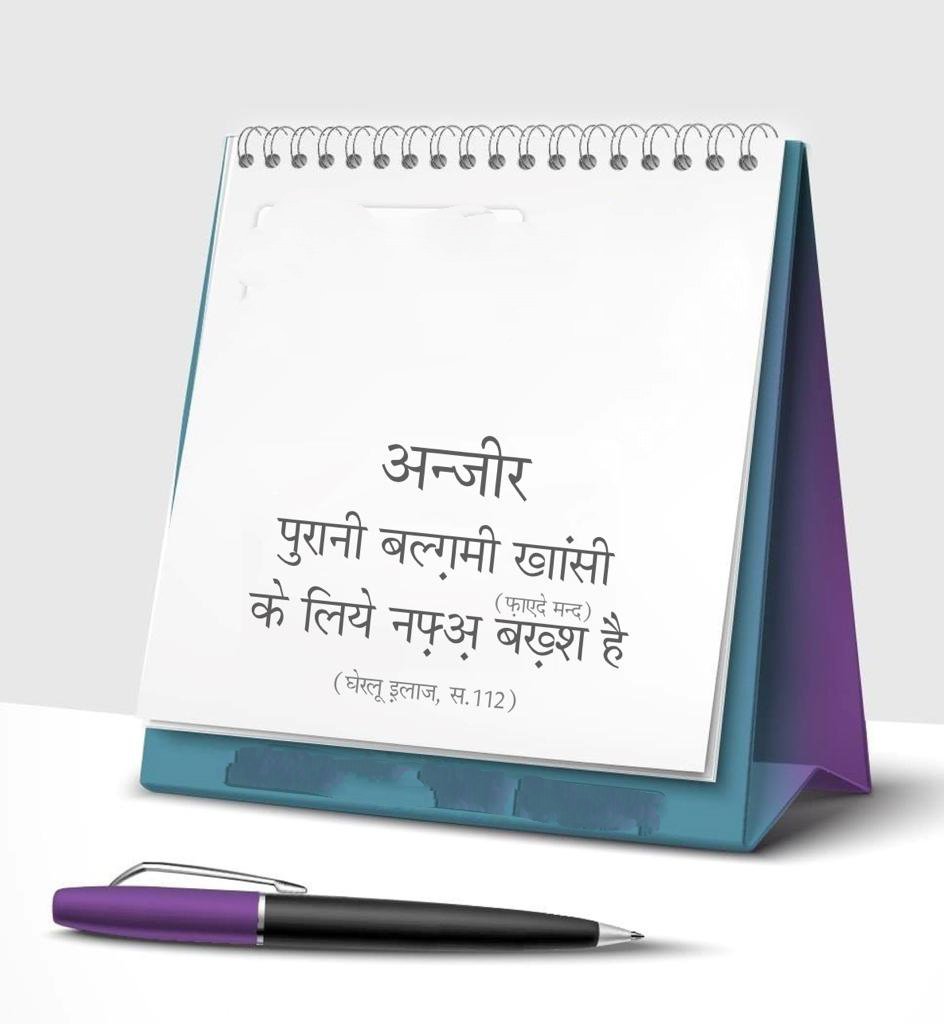 अन्जीर
पुरानी बल्ग़मी खांसी
(फ़ाएदे मन्द)
के लिये नफ़्अ़ बख़्श है
(घेरलू इ़लाज, स.112)